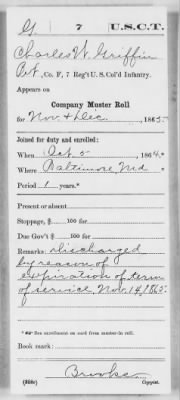 G 7 U.S.C.T.
Charles W. Griffin
Pvt, Co. F, 7 Reg't U. S. Col'd Infantry.
Appears on
Company Muster Roll
for Nov. & Dec., 1865.
Joined for duty and enrolled:
When Oct. 5, 1864.*
Where Baltimore Md
Period 1 years.*
Present or absent
Stoppage, $ 100 for
Due Gov't $ 100 for
Remarks: Discharged
by reason of
expiration of term
of service, Nov. 14, 1865.
*See enrollment on card from muster-in roll.
Book mark:
Brooke
(358c) Copyist.